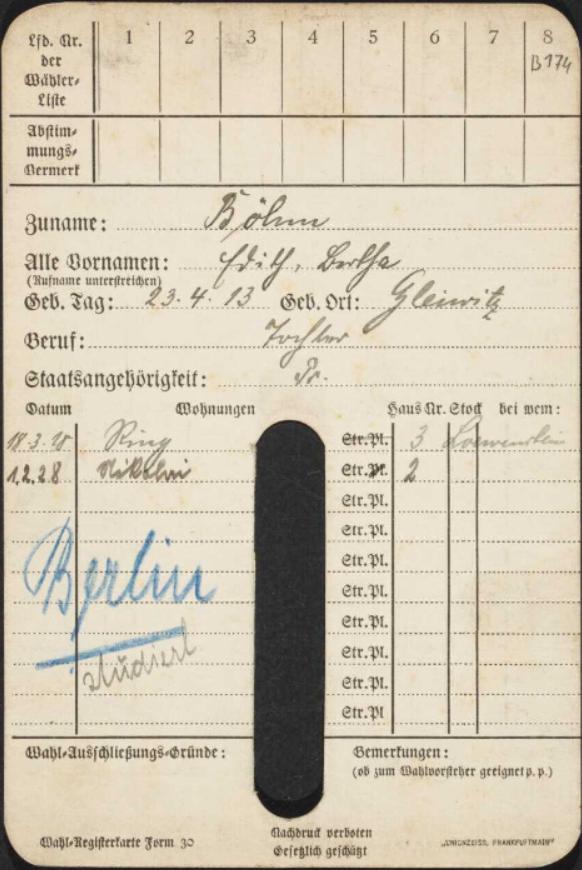 Lfd. Nr. der Wähler-Liste 1 2 3 4 5 6 7 8
B 174
Abstimmungs-Vermerk
Zuname: Böhm
Alle Vornamen: Edith, Bertha
(Rufname unterstreichen)
Geb. Tag: 23. 4. 13 Geb. Ort: Gleiwitz
Beruf: Tochter
Staatsangehörigkeit: Pr.
Datum Wohnungen Haus Nr. Stock bei wem:
18.3.18 Ring Str.Pl. 3 Loewenstein
1.2.28 Nikolai Str.Pl. 2
Str.Pl.
Str.Pl.
Str.Pl.
Berlin Str.Pl.
Str.Pl.
studiert Str.Pl.
Str.Pl.
Str.Pl
Wahl-Ausschließungs-Gründe: Bemerkungen:
(ob zum Wahlvorsteher geeignet p. p.)
Wahl-Registerkarte Form. 30
Nachdruck verboten
Gesetzlich geschützt
"UNIONZEISS, FRANKFURTMAIN"